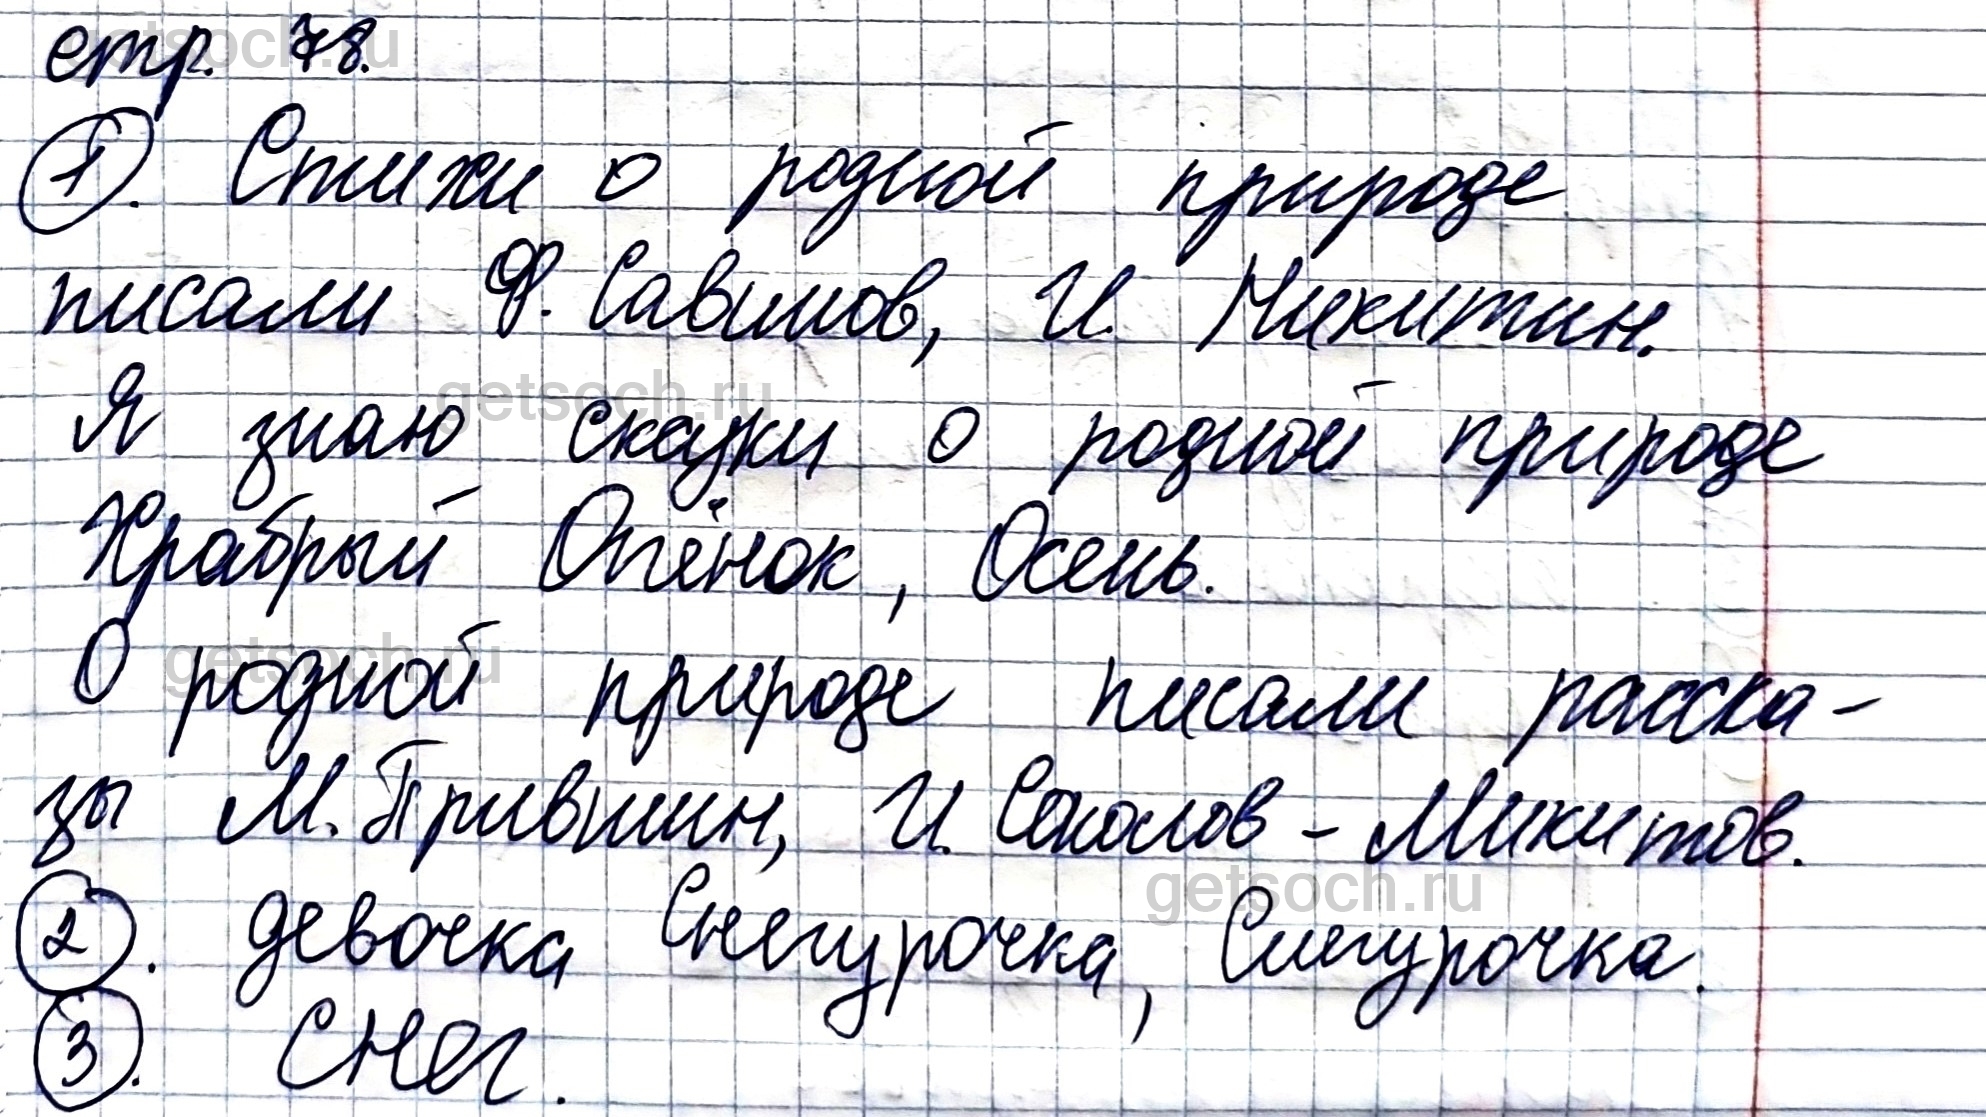 стр. 78.
1. Стихи о родной природе
писали Ф. Савинов, И. Никитин.
Я знаю сказки о родной природе
Храбрый Опёнок, Осень.
О родной природе писали расска-
зы М. Пришвин, И. Соколов - Микитов.
2. девочка Снегурочка, Снегурочка.
3. Снег.
getsoch.ru
getsoch.ru
getsoch.ru
getsoch.ru